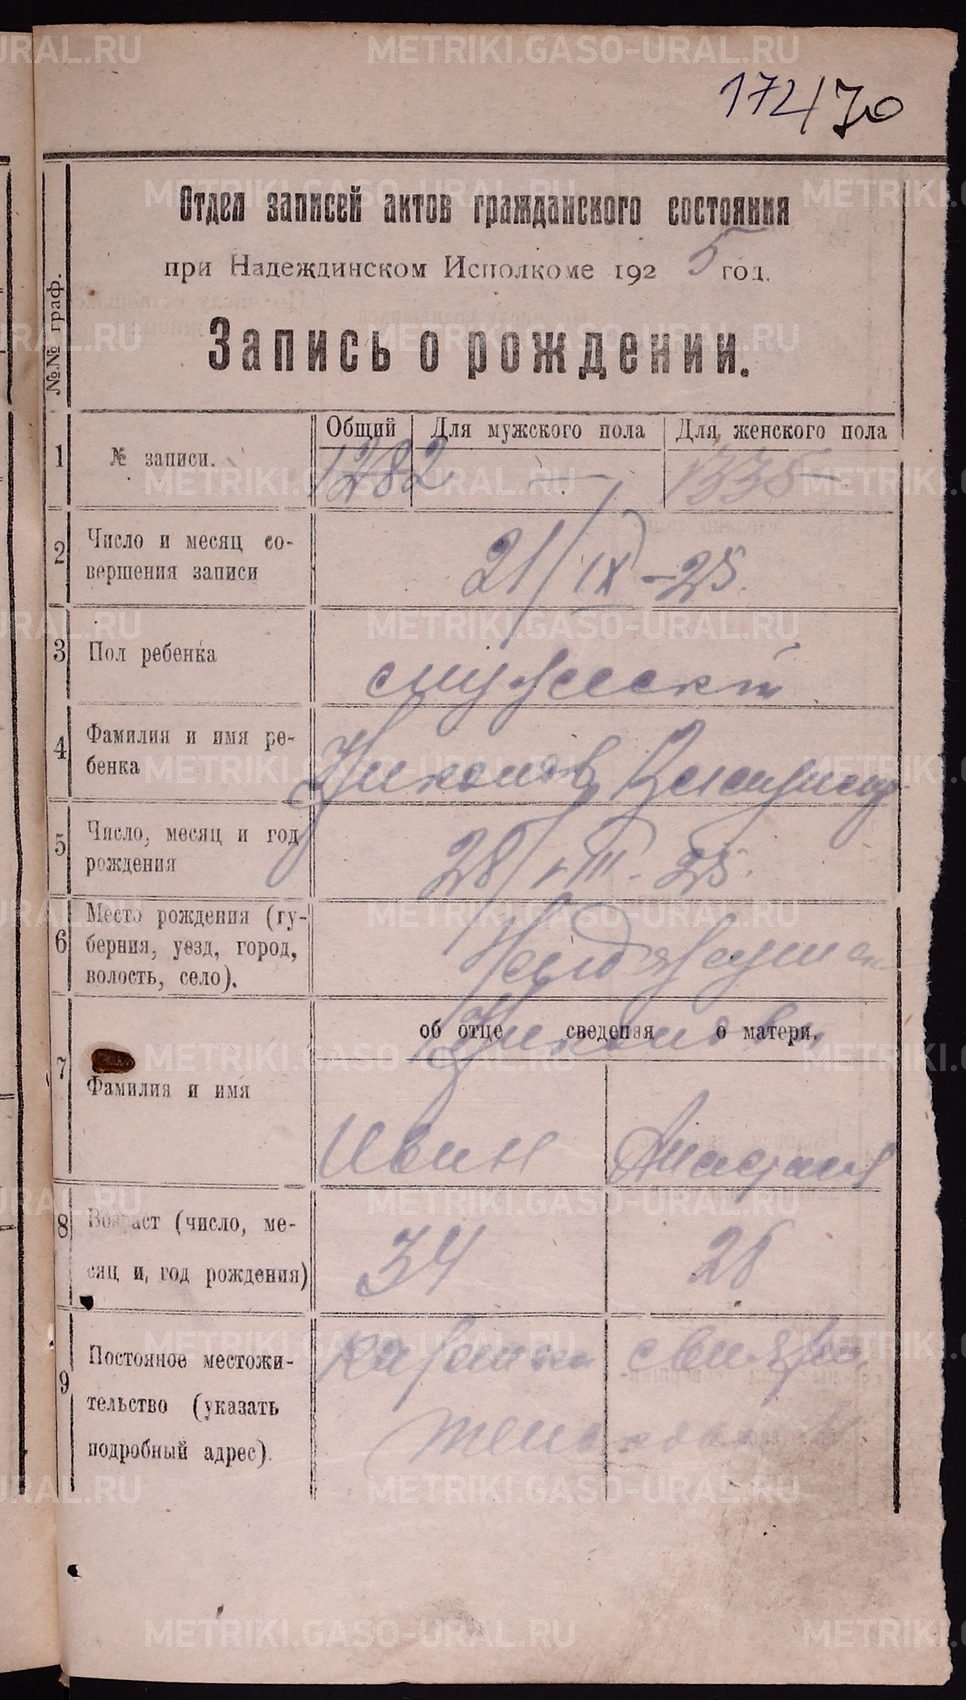 172/70
Отдел записей актов гражданского состояния
при Надеждинском Исполкоме 1925 год.
Запись о рождении.
№№ граф.
Общий Для мужского пола Для женского пола
1 № записи. 1282 — 1338
2 Число и месяц со-
вершения записи
21/IX-25.
3 Пол ребенка мужеский
4 Фамилия и имя ре-
бенка
Никонов
5 Число, месяц и год
рождения
28/VIII-25.
6 Место рождения (гу-
берния, уезд, город,
волость, село).
об отце сведения о матери.
Никоновы
7 Фамилия и имя
Иван
8 Возраст (число, ме-
сяц и, год рождения)
34 26
9 Постоянное местожи-
тельство (указать
подробный адрес).
METRIKI.GASO-URAL.RU